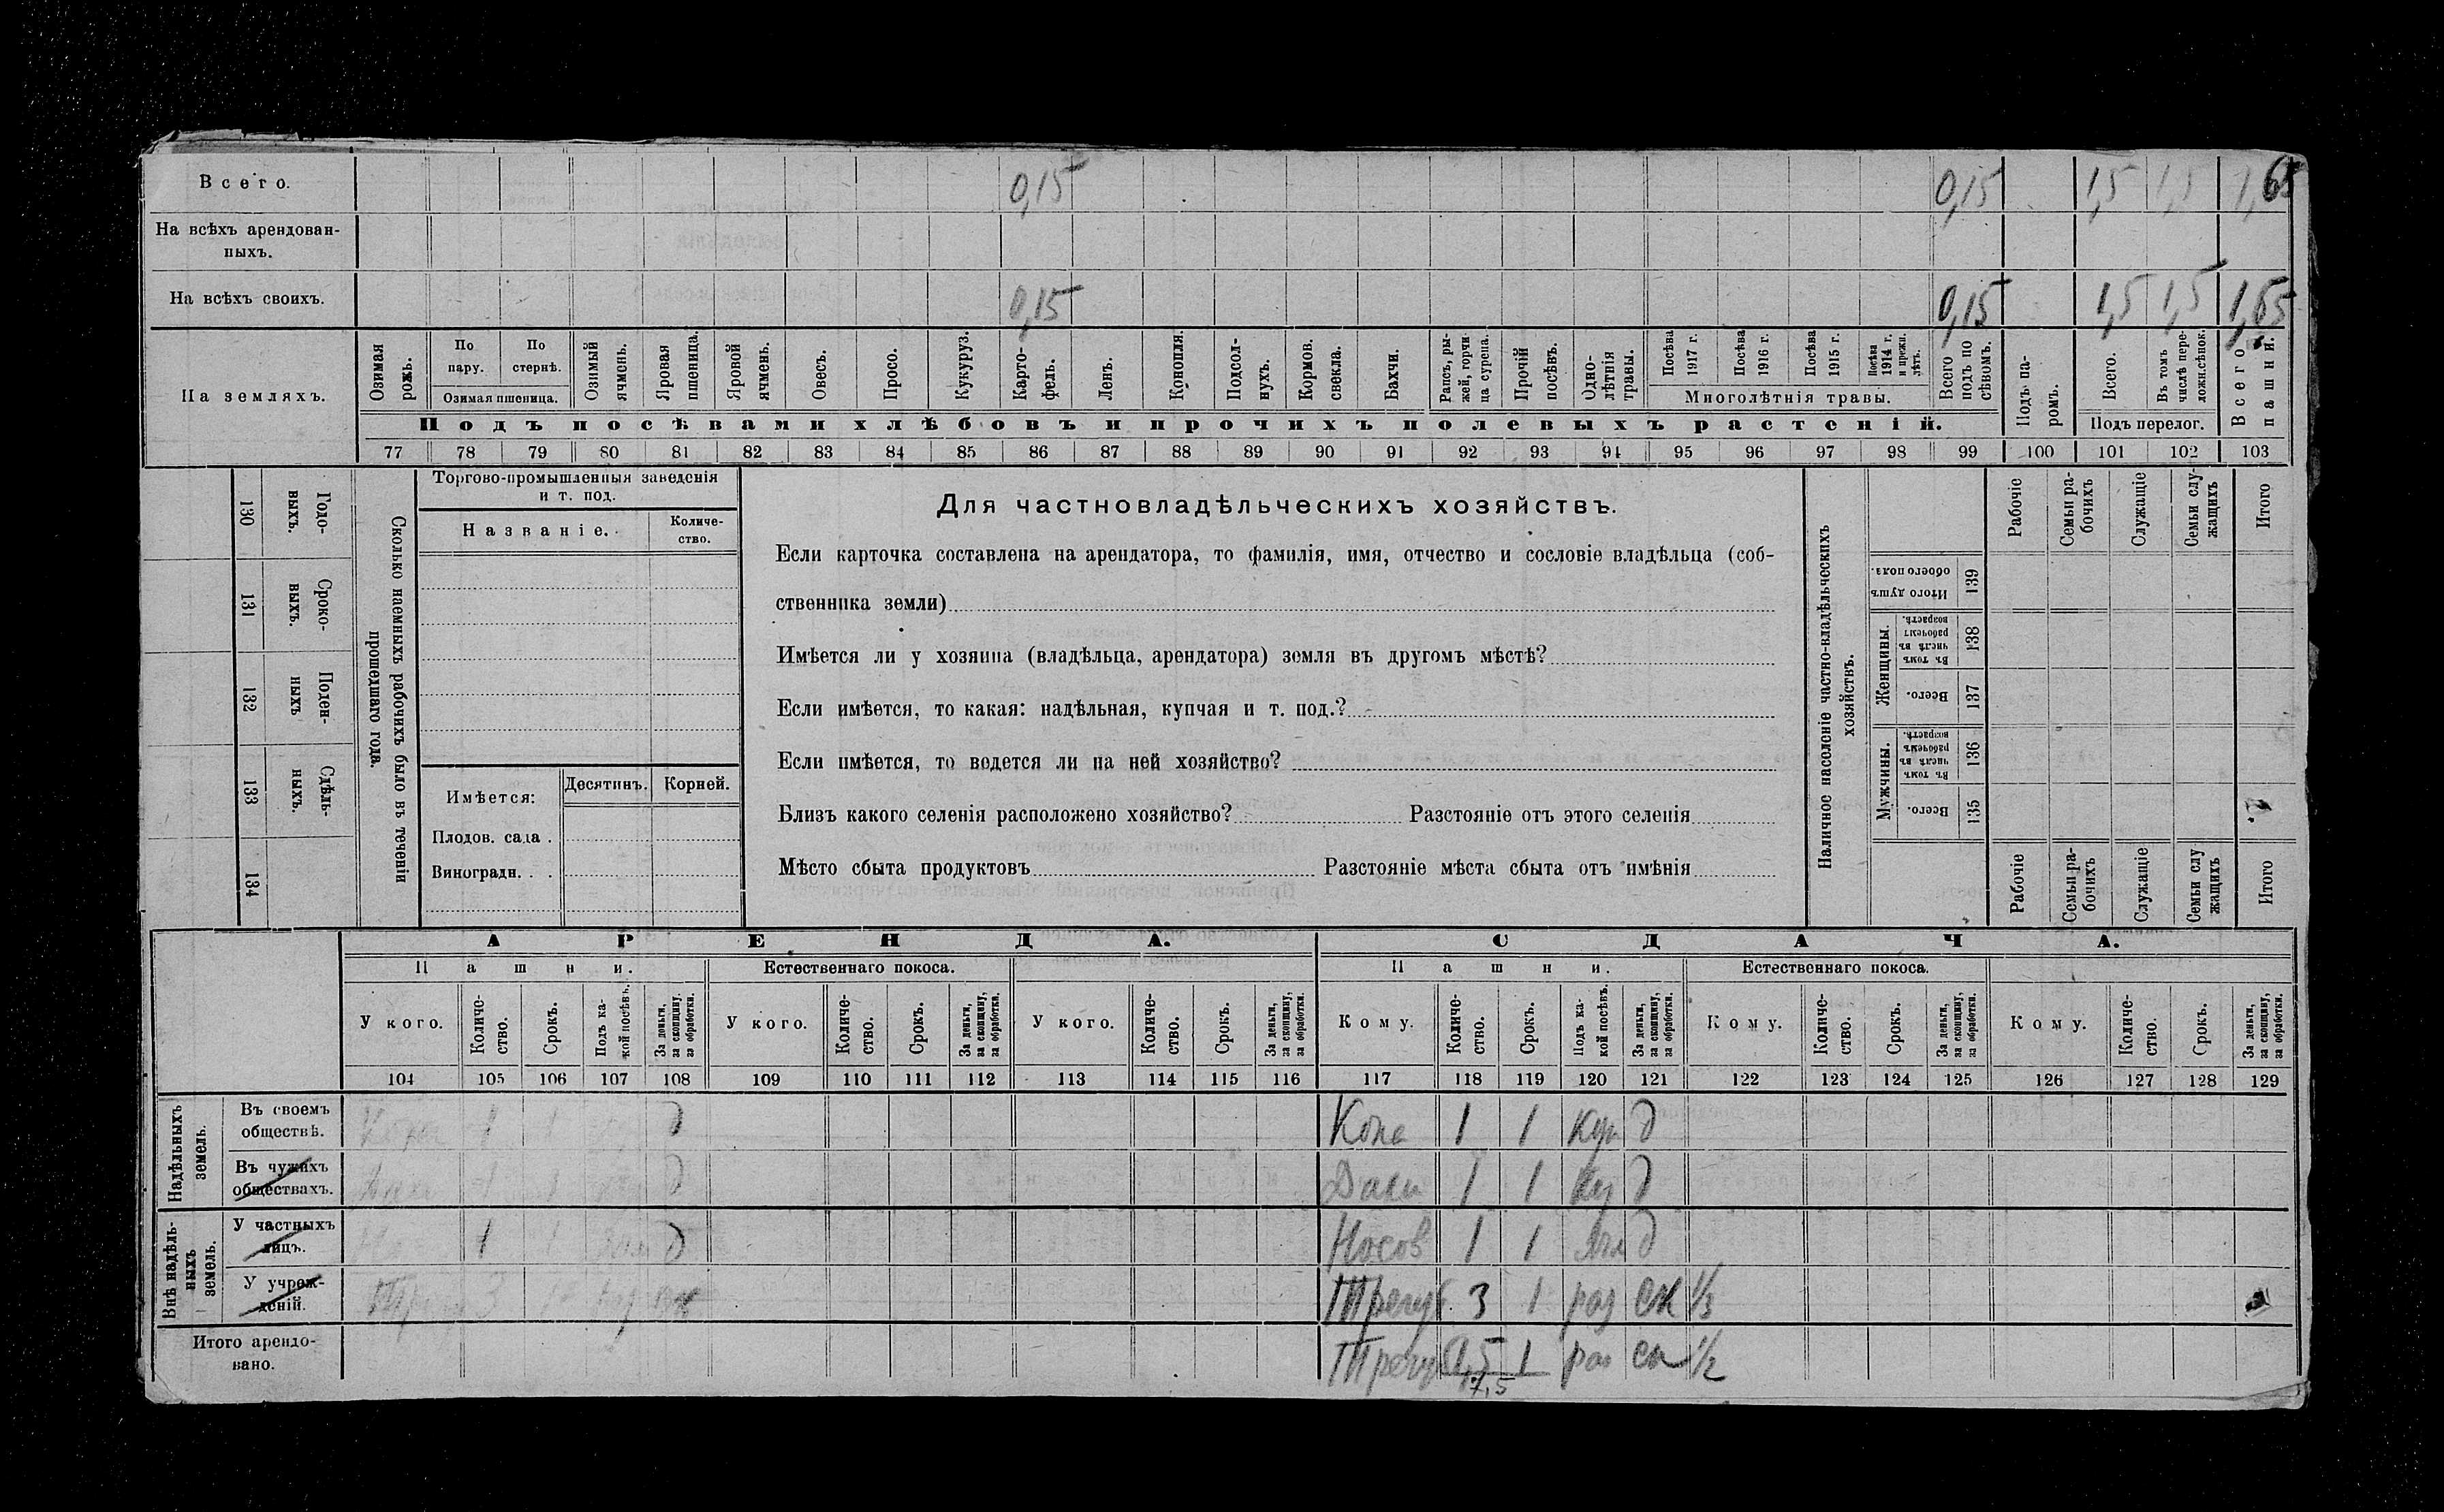 Всего. 0,15 0,15 1,5 1,65
На всѣхъ арендован-
ныхъ.
На всѣхъ своихъ. 0,15 0,15 1,5 1,5 1,65
На земляхъ.
Озимая рожь.
По пару.
По стернѣ.
Озимая пшеница.
Озимый ячмень.
Яровая пшеница.
Яровой ячмень.
Овесъ.
Просо.
Кукуруз.
Карто-
фель.
Ленъ.
Конопля.
Подсол-
нухъ.
Кормов. свекла.
Бахчи.
Рапсъ, ры-
жей, горчи-
ца сурепа.
Прочій посѣвъ.
Одно-
лѣтнія травы.
Посѣва 1917 г.
Посѣва 1916 г.
Посѣва 1915 г.
Посѣва 1914 г. и прежн. лѣтъ.
Многолѣтнія травы.
Всего подъ по
сѣвомъ.
Подъ па-
ромъ.
Всего.
Въ томъ числѣ пере-
ложн. сѣнок.
Подъ перелог.
Всего пашни.
Подъ посѣвами хлѣбовъ и прочихъ полевыхъ растеній.
77 78 79 80 81 82 83 84 85 86 87 88 89 90 91 92 93 94 95 96 97 98 99 100 101 102 103
130 Годо-
выхъ.
131 Сроко-
выхъ.
132 Поден-
ныхъ
133 Сдѣль-
ныхъ.
134
Сколько наемныхъ рабочихъ было въ теченіи
прошедшаго года.
Торгово-промышленныя заведенія
и т. под.
Названіе.
Количе-
ство.
Имѣется:
Десятинъ. Корней.
Плодов. сада .
Виноградн. . .
Для частновладѣльческихъ хозяйствъ.
Если карточка составлена на арендатора, то фамилія, имя, отчество и сословіе владѣльца (соб-
ственника земли)
Имѣется ли у хозяина (владѣльца, арендатора) земля въ другомъ мѣстѣ?
Если имѣется, то какая: надѣльная, купчая и т. под.?
Если имѣется, то ведется ли на ней хозяйство?
Близъ какого селенія расположено хозяйство? Разстояніе отъ этого селенія
Мѣсто сбыта продуктовъ Разстояніе мѣста сбыта отъ имѣнія
Наличное населеніе частно-владѣльческихъ
хозяйствъ.
Рабочіе
Семьи ра-
бочихъ
Служащіе
Семьи слу-
жащихъ
Итого
Итого душъ обоего пола. 139
Женщины.
Въ томъ числѣ въ рабочемъ возрастѣ. 138
Всего. 137
Мужчины.
Въ томъ числѣ въ рабочемъ возрастѣ. 136
Всего. 135
Рабочіе
Семьи ра-
бочихъ
Служащіе
Семьи слу
жащихъ
Итого
АРЕНДА. СДАЧА.
Пашни. Естественнаго покоса. Пашни. Естественнаго покоса.
У кого.
Количе-
ство.
Срокъ.
Подъ ка-
кой посѣвъ.
За деньги, за скопщину, за обработки.
У кого.
Количе-
ство.
Срокъ.
За деньги, за скопщину, за обработки.
У кого.
Количе-
ство.
Срокъ.
За деньги, за скопщину, за обработки.
Кому.
Количе-
ство.
Срокъ.
Подъ ка-
кой посѣвъ.
За деньги, за скопщину, за обработки.
Кому.
Количе-
ство.
Срокъ.
За деньги, за скопщину, за обработки.
Кому.
Количе-
ство.
Срокъ.
За деньги, за скопщину, за обработки.
104 105 106 107 108 109 110 111 112 113 114 115 116 117 118 119 120 121 122 123 124 125 126 127 128 129
Надѣльныхъ земель.
Въ своемъ
обществѣ. 1 1 д 1 1 д
Въ чужихъ
обществахъ. 1 1 д 1 1 д
Внѣ надѣль-
ныхъ земель.
У частныхъ
лицъ. 1 1 д Носов 1 1 д
У учреж-
деній. 3 3 1 раз ск 1/3
Итого арендо-
вано. 1,5 1 ск 1/2
7,5